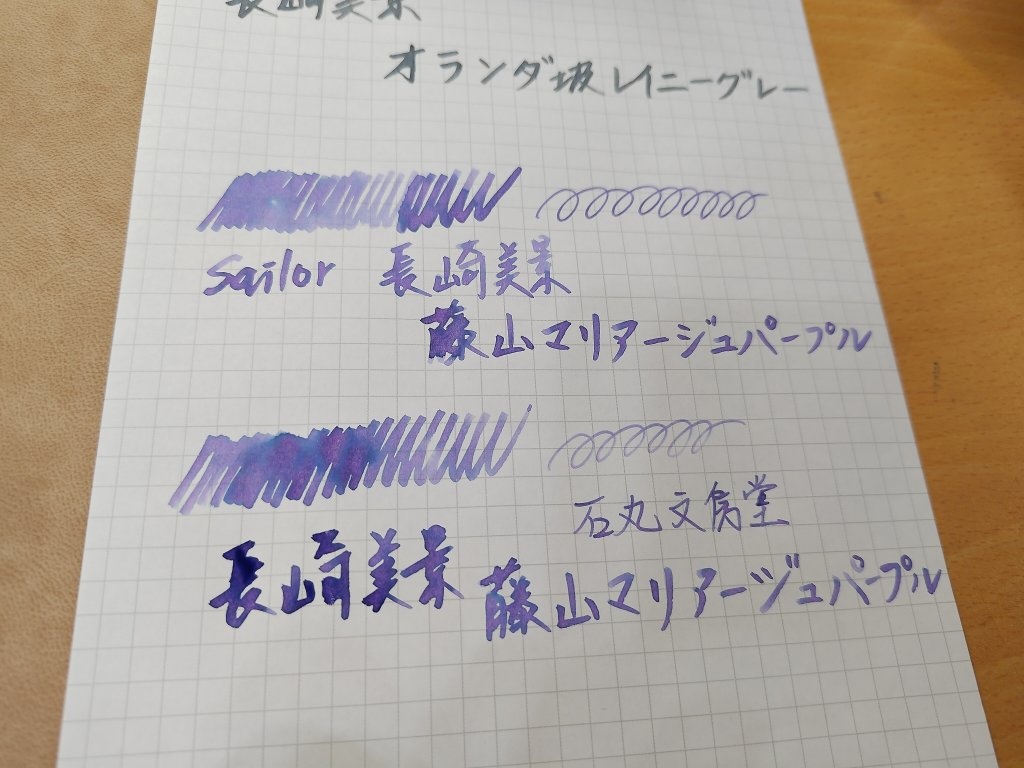 長崎美景
オランダ坂レイニーグレー
Sailor 長崎美景
藤山マリアージュパープル
石丸文房堂
長崎美景 藤山マリアージュパープル